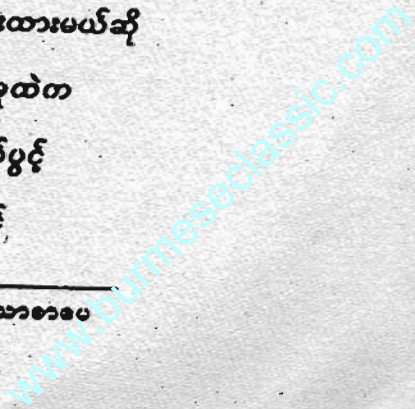 းထားမယ်ဆို
ထဲက
ပွင့်
သာစာပေ
www.burmeseclassic.com